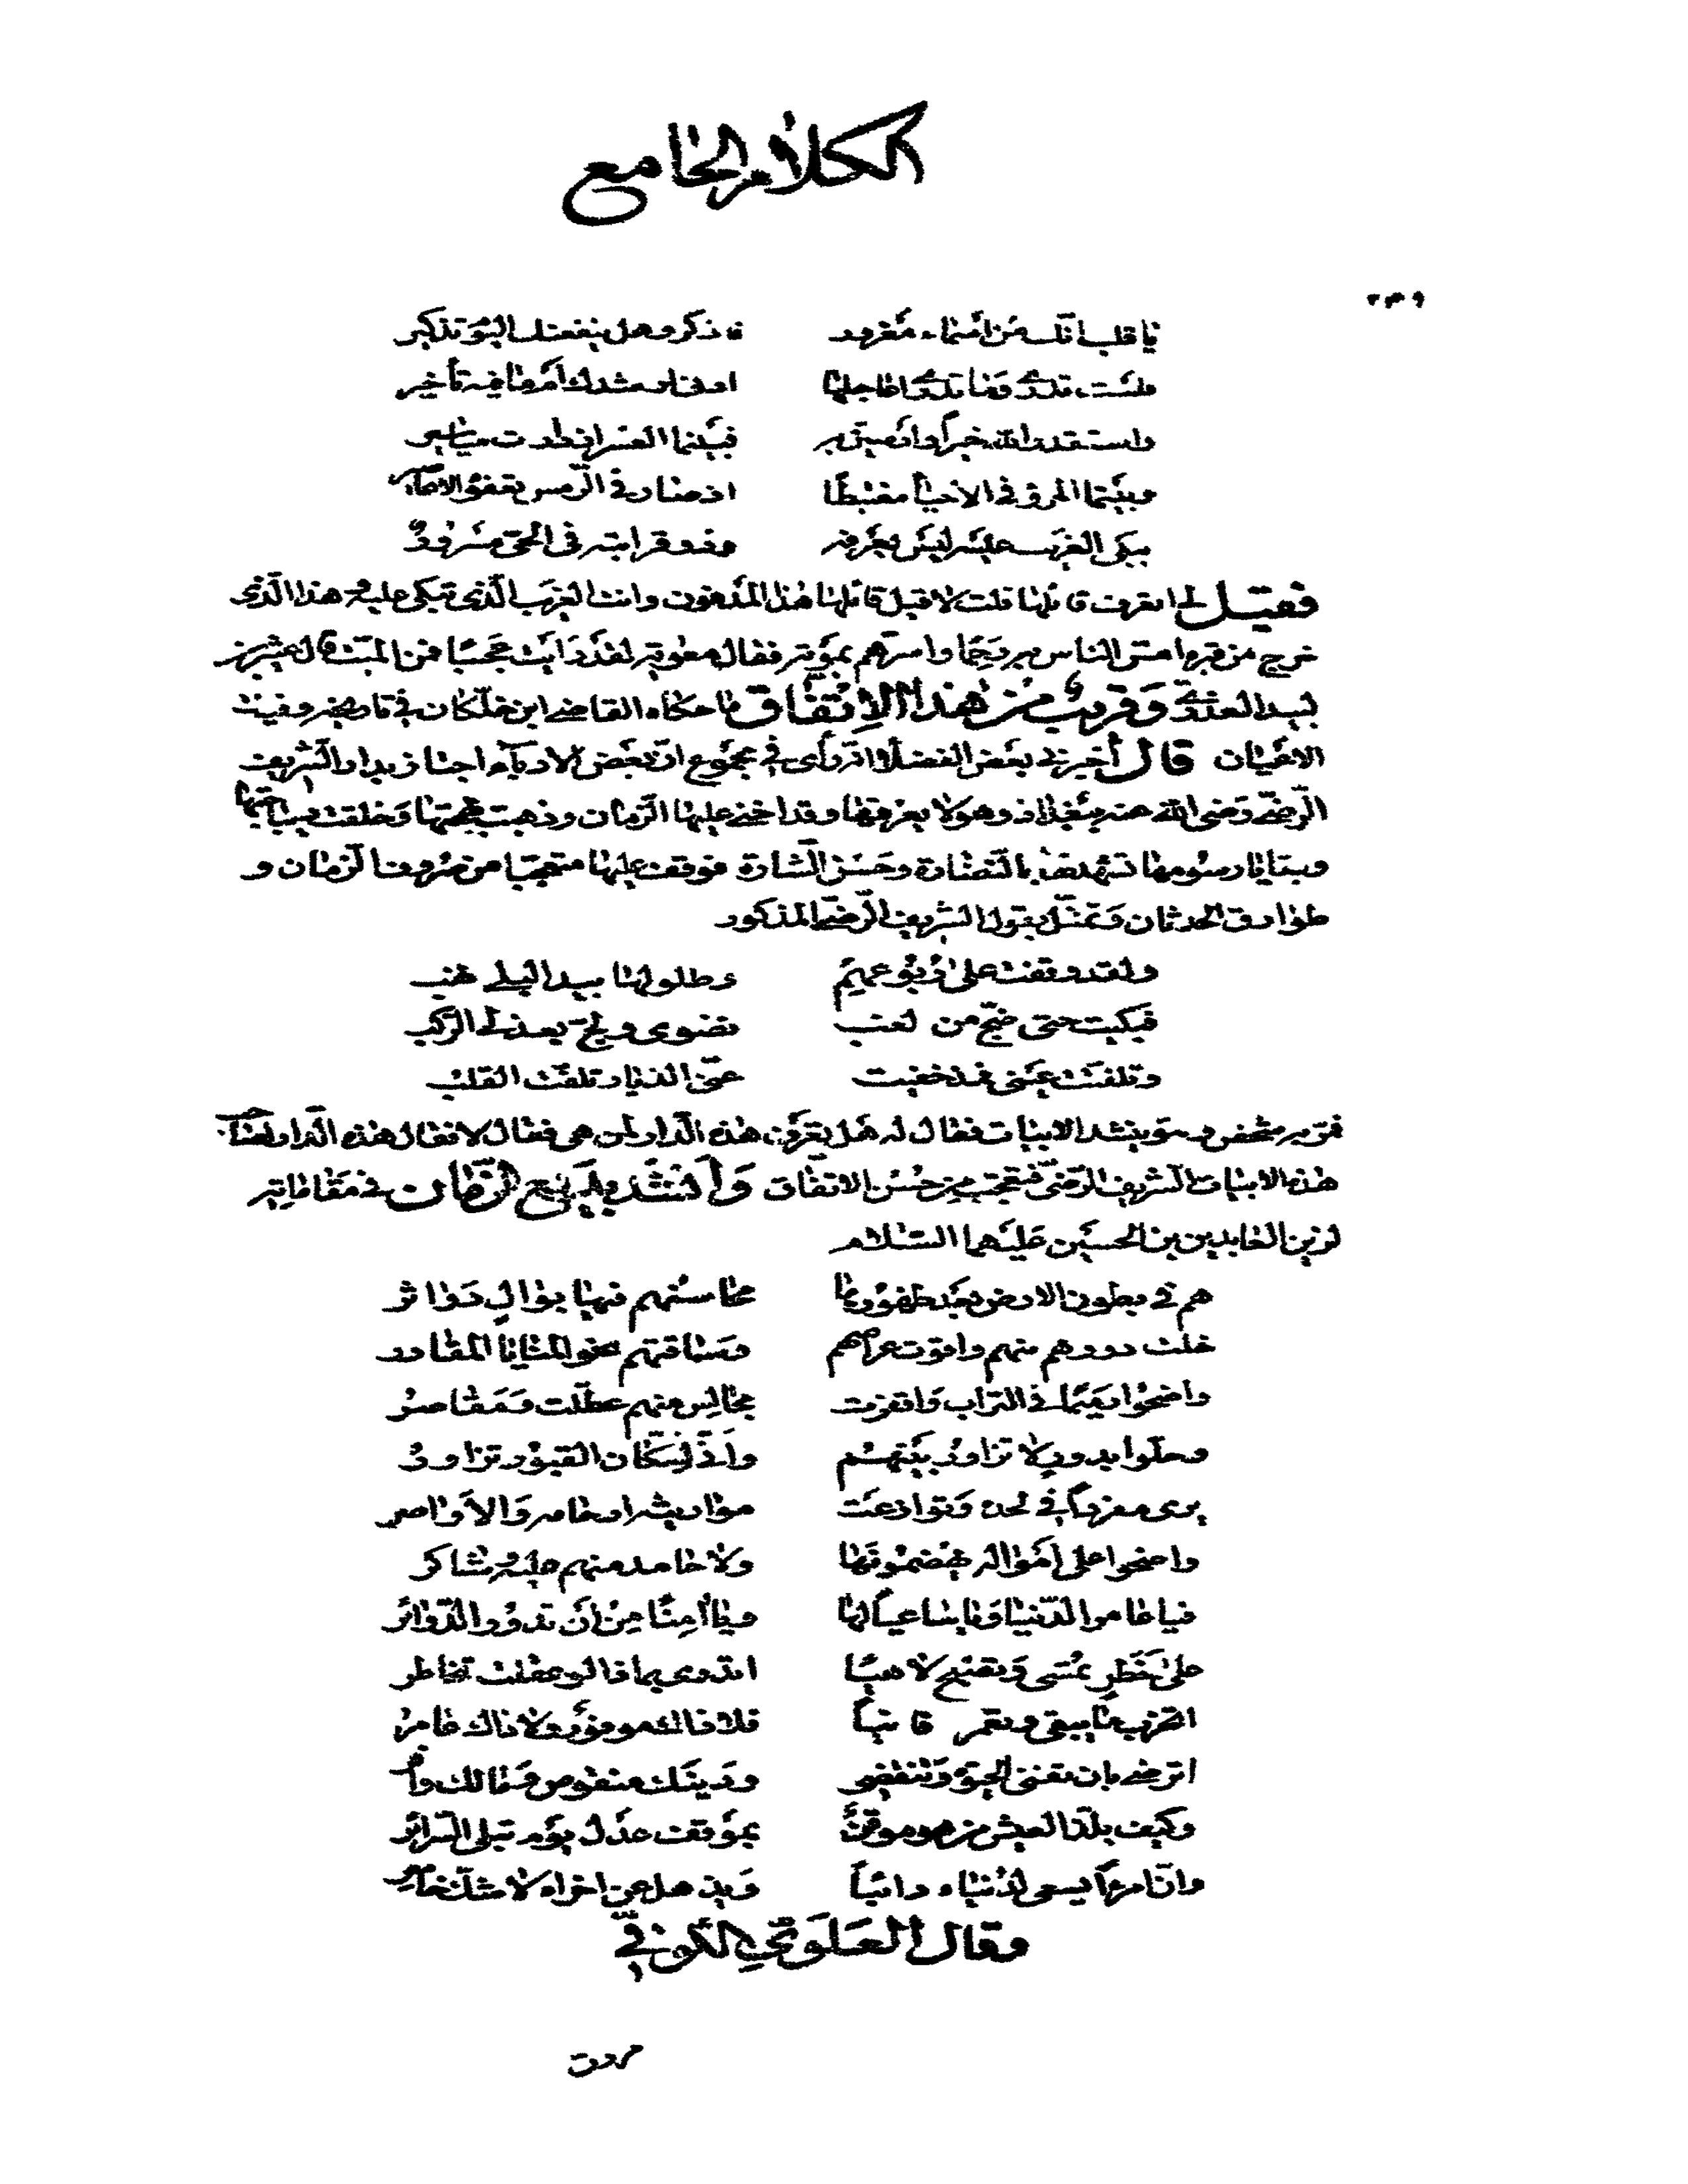 الكلام الجامع
يا قلب انك من اسماء مغرور فاذكر وهل ينفعنك اليوم تذكير
فلست تدرى وما تدرى اعاجلها ادنى لرشدك أم ما فيه تأخير
واستقدر الله خيراً وارضين به فبينما العسر اذ دارت مياسير
وبينما المرؤ فى الاحياء مغتبطا اذ صار فى الرمس تعفوه الاعاصير
يبكى الغريب عليه ليس يعرفه وذو قرابته فى الحىّ مسرور
فقيل لى اتعرف قائلها قلت لا قيل قائلها هذا المدفون وانت الغريب الّذى تبكى عليه وهذا الّذى
خرج من قبره امسّ الناس به رحما واسرّهم بموته فقال معوية لقد رايت عجبا فمن الميّت قال عثير بن
لبيد العذرى وقريب من هذا الاتفاق ما حكاه القاضى ابن خلّكان فى تاريخه وفيات
الاعيان قال أخبرنى بعض الفضلاء انه رأى فى مجموع انّ بعض الادباء اجتاز بدار الشريف
الرّضىّ رضى الله عنه ببغداذ وهو لا يعرفها وقد اخنى عليها الزمان وذهبت بهجتها وخلقت ديباجتها
وبقايا رسومها تشهد لها بالنّضارة وحسن الشارة فوقف عليها متعجّبا من صروف الزمان و
طوارق الحدثان وتمثّل بقول الشريف الرّضىّ المذكور
ولقد وقفت على ربوعهم وطلولها بيد البلى نهب
فبكيت حتى ضجّ من لغب نضوى ولجّ بعذلى الركب
وتلفتت عينى فمذ خفيت عنّى الديار تلفّت القلب
فمرّ به شخص وهو ينشد الابيات فقال له هل تعرف هذه الدار لمن هى فقال لا فقال هذه الدار لصاحب
هذه الابيات الشريف الرّضىّ فتعجّب من حسن الاتفاق وأنشد بديع الزمان فى مقاماته
لزين العابدين بن الحسين عليهما السلام
هم فى بطون الارض بعد ظهورها محاسنهم فيها بوال دواثر
خلت دورهم منهم واقوت عراصهم وساقتهم نحو المنايا المقادر
واضحوا رميما فى التراب واقفرت مجالس منهم عطّلت ومقاصر
وحلّوا بدار لا تزاور بينهم وأنّى لسكّان القبور تزاور
واحنوا على امواله يخضمونها ولا حامد منهم عليه وشاكر
فيا عامر الدّنيا ويا ساعياً لها ويا آمنا من أن تدور الدّوائر
على خطر تمسى وتصبح لاهيا اتدرى بماذا لو عقلت تخاطر
اتخرب ما يبقى وتعمر فانياً فلا ذاك موفور ولا ذاك عامر
اترضى بان تفنى الحيوة وتنقضى ودينك منقوص ومالك وافر
وكيف يلذّ العيش من هو موقن بموقف عدل يوم تبلى السرائر
وانّ امرءاً يسعى لدنياه دائباً ويذهل عن اخراه لا شكّ خاسر
وقال العلوىّ الكوفىّ